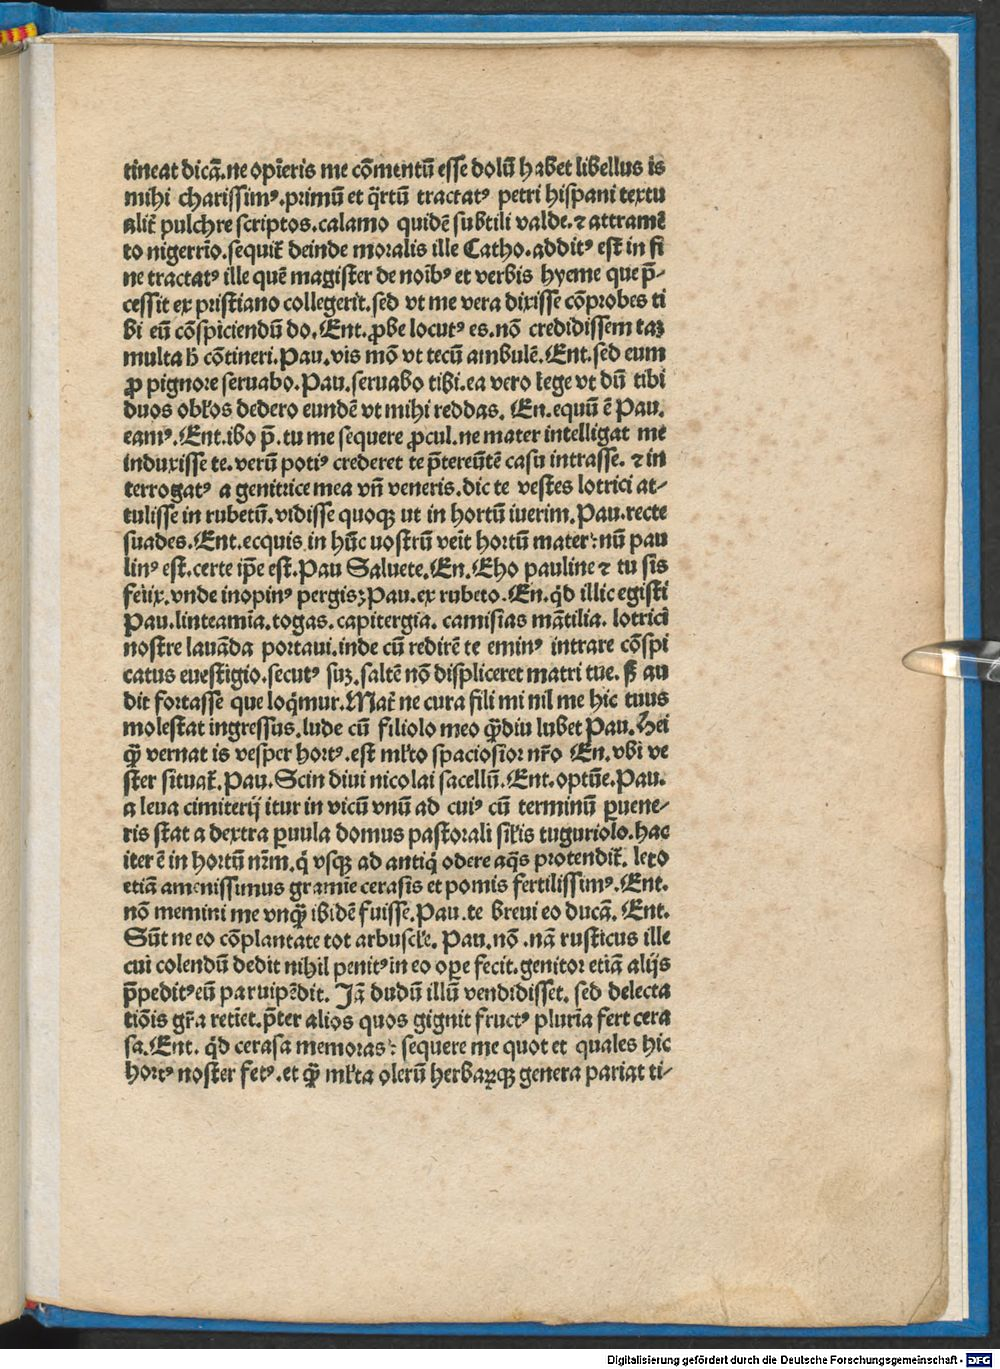 tineat dicā.ne opīeris me cōmentū esse dolū habet libellus is
mihi charissimꝰ.primū et q̄rtū tractatꝰ petri hispani textu
alit̄ pulchre scriptos.calamo quidē subtili valde.⁊ attramē
to nigerrīo.sequit̄ deinde moralis ille Catho.additꝰ est in fi
ne tractatꝰ ille quē magister de noībꝰ et verbis hyeme que p̄-
cessit ex pristiano collegerit.sed vt me vera dixisse cōprobes ti
bi eū cōspiciendū do.Ent.ꝓbe locutꝰ es.nō credidissem taꝫ
multa h̄ cōtineri.Pau.vis mō vt tecū ambulē.Ent.sed eum
ꝓ pignore seruabo.Pau.seruabo tibi.ea vero lege vt dū tibi
duos obl̄os dedero eundē vt mihi reddas. En.equū ē Pau.
eamꝰ.Ent.ibo p̄.tu me sequere ꝓcul.ne mater intelligat me
induxisse te.verū potiꝰ crederet te p̄tereūtē casu intrasse. ⁊ in
terrogatꝰ a genitrice mea vn̄ veneris.dic te vestes lotrici at-
tulisse in rubetū.vidisse quoqꝫ ut in hortū iuerim.Pau.recte
suades.Ent.ecquis in hūc uostrū veīt hortū mater:nū pau
linꝰ est.certe ip̄e est.Pau Saluete.En.Eho pauline ⁊ tu sis
felix.vnde inopinꝰ pergis;Pau.ex rubeto.En.q̄d illic egisti
Pau.linteamīa.togas.capitergia. camisias mātilia. lotrici
nostre lauāda portaui.inde cū redirē te eminꝰ intrare cōspi
catus euestigio.secutꝰ suꝫ.saltē nō displiceret matri tue. ſꝫ au
dit fortasse que loq̄mur.Mat̄ ne cura fili mi nil me hic tuus
molestat ingressus.lude cū filiolo meo q̄ꝫdiu lubet Pau.Hei
q̄ꝫ vernat is vesper hortꝰ.est ml̄to spaciosior nr̄o En.vbi ve
ster situat̄.Pau.Scin diui nicolai sacellū.Ent.optūe.Pau.
a leua cimiterij itur in vicū vnū ad cuiꝰ cū terminū ꝑuene-
ris stat a dextra ꝑuula domus pastorali sil̄is tuguriolo.hac
iter ē in hortū nr̄m.q̄ vsqꝫ ad antiq̄ odere aq̄s protendit̄. leto
etiā amenissimus gramīe cerasis et pomis fertilissimꝰ.Ent.
nō memini me vnq̄ꝫ ibidē fuisse.Pau.te breui eo ducā. Ent.
Sūt ne eo cōplantate tot arbuscl̄e. Pau.nō .nā rusticus ille
cui colendū dedit nihil penitꝰ in eo oꝑe fecit.genitor etiā alijs
p̄peditꝰ eū paruipēdit. Jā dudū illū vendidisset. sed delecta
tiōis gr̄a retiet.p̄ter alios quos gignit fructꝰ plurīa fert cera
sa.Ent. q̄d cerasa memoras: sequere me quot et quales hic
hortꝰ noster fetꝰ.et q̄ꝫ ml̄ta olerū herbaꝝqꝫ genera pariat ti-
Digitalisierung gefördert durch die Deutsche Forschungsgemeinschaft - DFG